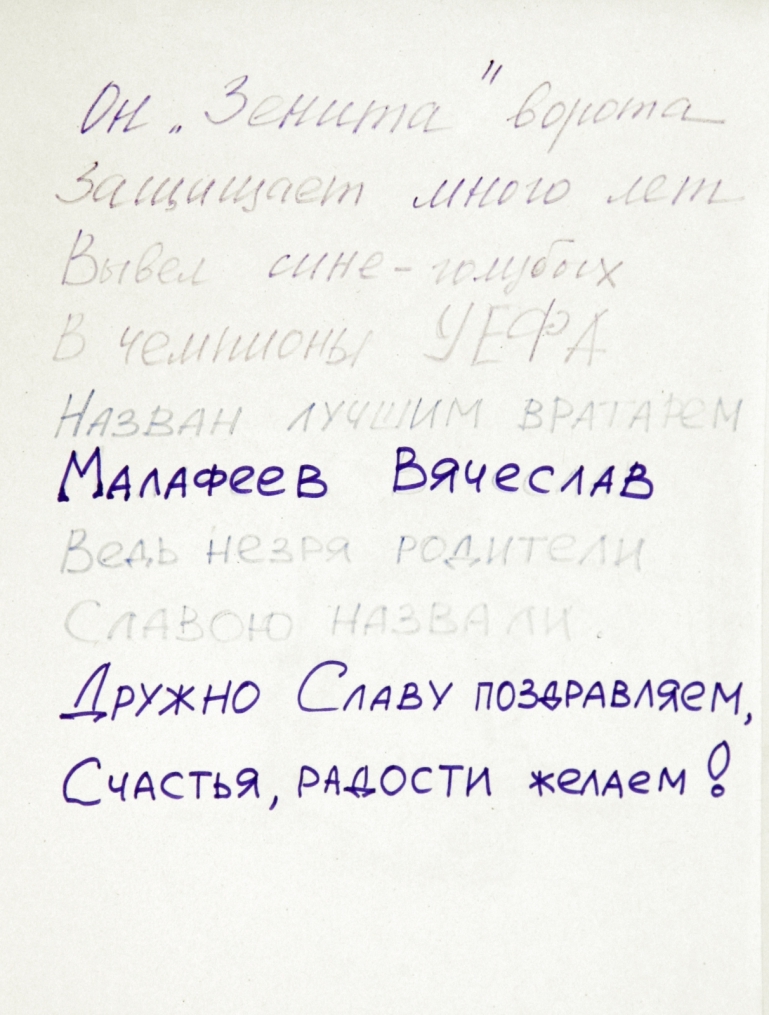 Он „Зенита" ворота
Защищает много лет
Вывел сине-голубых
В чемпионы УЕФА
Назван лучшим вратарем
Малафеев Вячеслав
Ведь незря родители
Славою назвали.
Дружно Славу поздравляем,
Счастья, радости желаем!